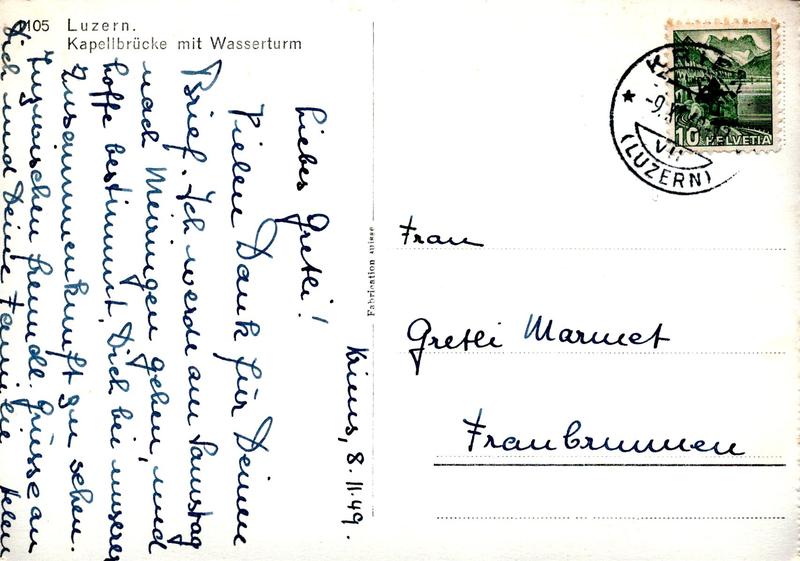 2105 Luzern.
Kapellbrücke mit Wasserturm
Kriens, 8.11.49.
Liebes Gretli!
Vielen Dank für Deinen
Brief. Ich werde am Samstag
nach Meiringen gehen, und
hoffe bestimmt, Dich bei unserer
Zusammenkunft zu sehen.
Inzwischen freundl. Grüsse an
Dich und Deine Familie Helen
Fabrication suisse
KRIENS
-9.
VII
(LUZERN)
10 HELVETIA
Frau
Gretli Marmet
Fraubrunnen